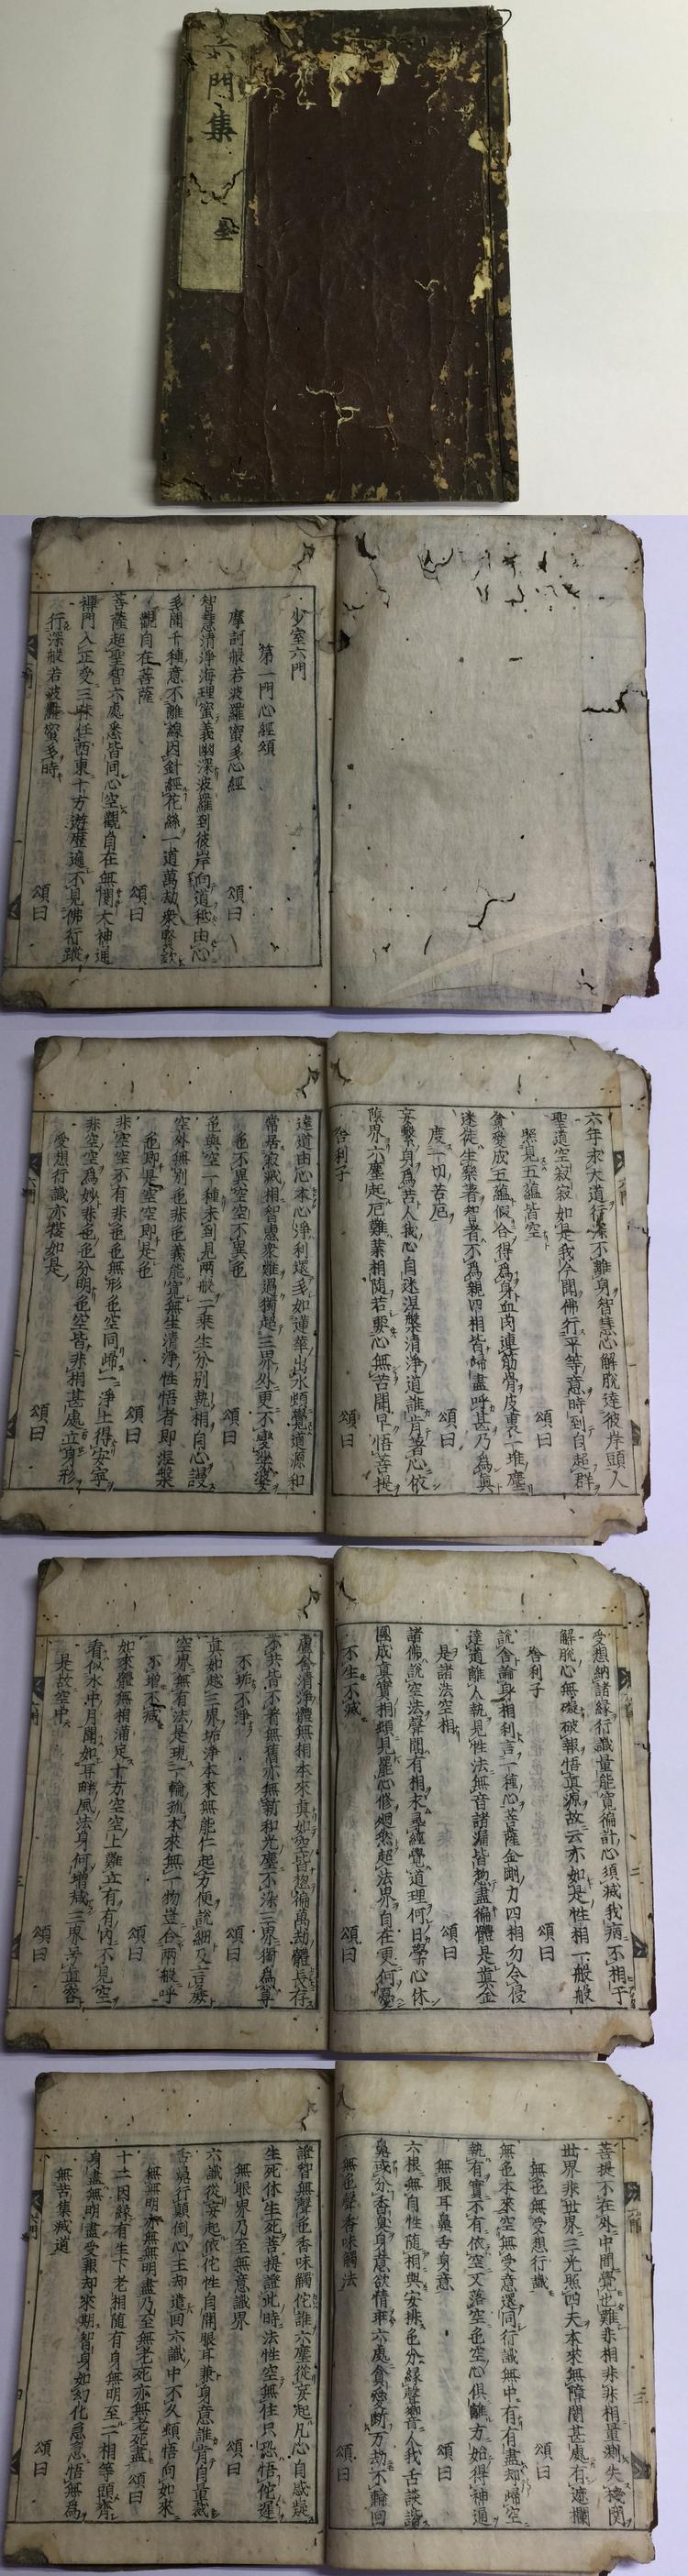 六門集
全
少室六門
第一門心經頌
摩訶般若波羅蜜多心經
頌曰
智慧清淨海理蜜義幽深波羅到彼岸向道秪由心
多聞千種意不離線因針經花絲一道萬劫衆賢欽
觀自在菩薩
頌曰
菩薩超聖智六處悉皆同心空觀自在無閡大神通
禪門入正受三昧任西東十方遊歷遍不見佛行蹤
行深般若波羅蜜多時
頌曰
六年求大道行深不離身智慧心解脫達彼岸頭人
聖道空寂寂如是我今聞佛行平等意時到自超群
照見五蘊皆空
頌曰
貪愛成五蘊假合得為身血肉連筋骨皮裹一堆塵
迷徒生樂著智者不為親四相皆歸盡呼甚乃為眞
度一切苦厄
頌曰
妄繫身為苦人我心自迷涅槃清淨道誰肯著心依
陰界六塵起厄難業相隨若要心無苦聞早悟菩提
舍利子
頌曰
達道由心本心淨利還多如蓮華出水頓覺道源和
常居寂滅相智惠衆難過獨超三界外更不戀娑婆
色不異空空不異色
頌曰
色與空一種未到見兩般二乘生分別執相自心謾
空外無別色非色義能寬無生清淨性悟者即涅槃
色即是空空即是色
頌曰
非空空不有非色色無形色空同歸一淨土得安寧
非空空為妙非色色分明色空皆非相甚處立身形
受想行識亦復如是
頌曰
受想納諸緣行識量能寬徧計心須滅我病不相干
解脫心無礙破執悟眞源故云亦如是性相一般般
舍利子
頌曰
說舍論身相利言一種心菩薩金剛力四相勿令侵
達道離人執見性法無音諸漏皆揔盡徧體是眞金
是諸法空相
頌曰
諸佛說空法聲聞有相求尋經覓道理何日學心休
圓成眞實相頓見罷心修迥然超法界自在更何憂
不生不滅
頌曰
盧舍清淨體無相本來眞如空皆揔徧萬劫體長存
不共皆不著無舊亦無新和光塵不染三界獨為尊
不垢不淨
頌曰
眞如越三界垢淨本來無能仁起方便說細及言麁
空界無有法是現一輪孤本來無一物豈合兩般呼
不增不減
頌曰
如來體無相滿足十方空空上難立有有內不見空
看似水中月聞如耳畔風法身何增減三界号眞容
是故空中
頌曰
菩提不在外中間覓也難非相非非相量測失機關
世界非世界三光照四天本來無障閡甚處有遮欄
無色無受想行識
頌曰
無色本來空無受意還同行識無中有有盡却歸空
執有實不有依空又落空色空心俱離方始得神通
無眼耳鼻舌身意
頌曰
六根無自性隨相與安排色分緣聲響人我舌詼諧
鼻或分香臭身意欲情乖六處貪愛斷万劫不輪回
無色聲香味觸法
頌曰
證智無聲色香味觸佗誰六塵從妄起凡心自惑疑
生死休生死菩提證此時法性空無住只恐悟佗遲
無眼界乃至無意識界
頌曰
六識從妄起依佗性自開眼耳兼身意誰肯自量裁
舌鼻行顛倒心王却遣回六識中不久頓悟向如來
無無明亦無無明盡乃至無老死亦無老死盡
頌曰
十二因緣有生下老相隨有身無明至二相等頭齊
身盡無明盡受報却來期智身如幻化急急悟無為
無苦集滅道
頌曰